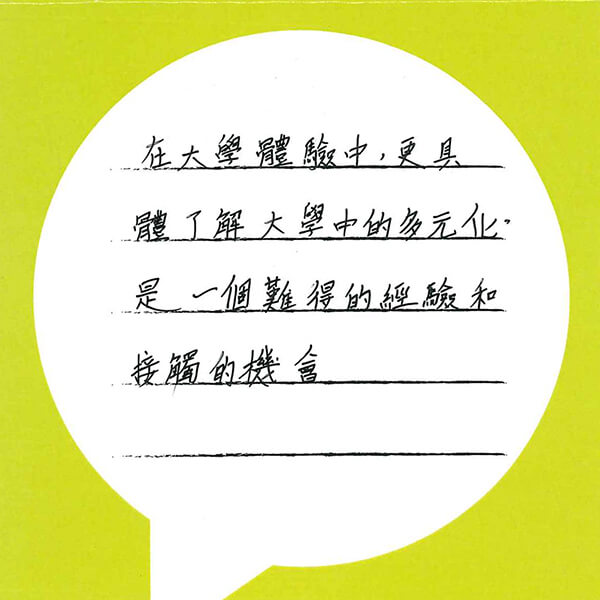 在大學體驗中，更具
體了解大學中的多元化。
是一個難得的經驗和
接觸的機會